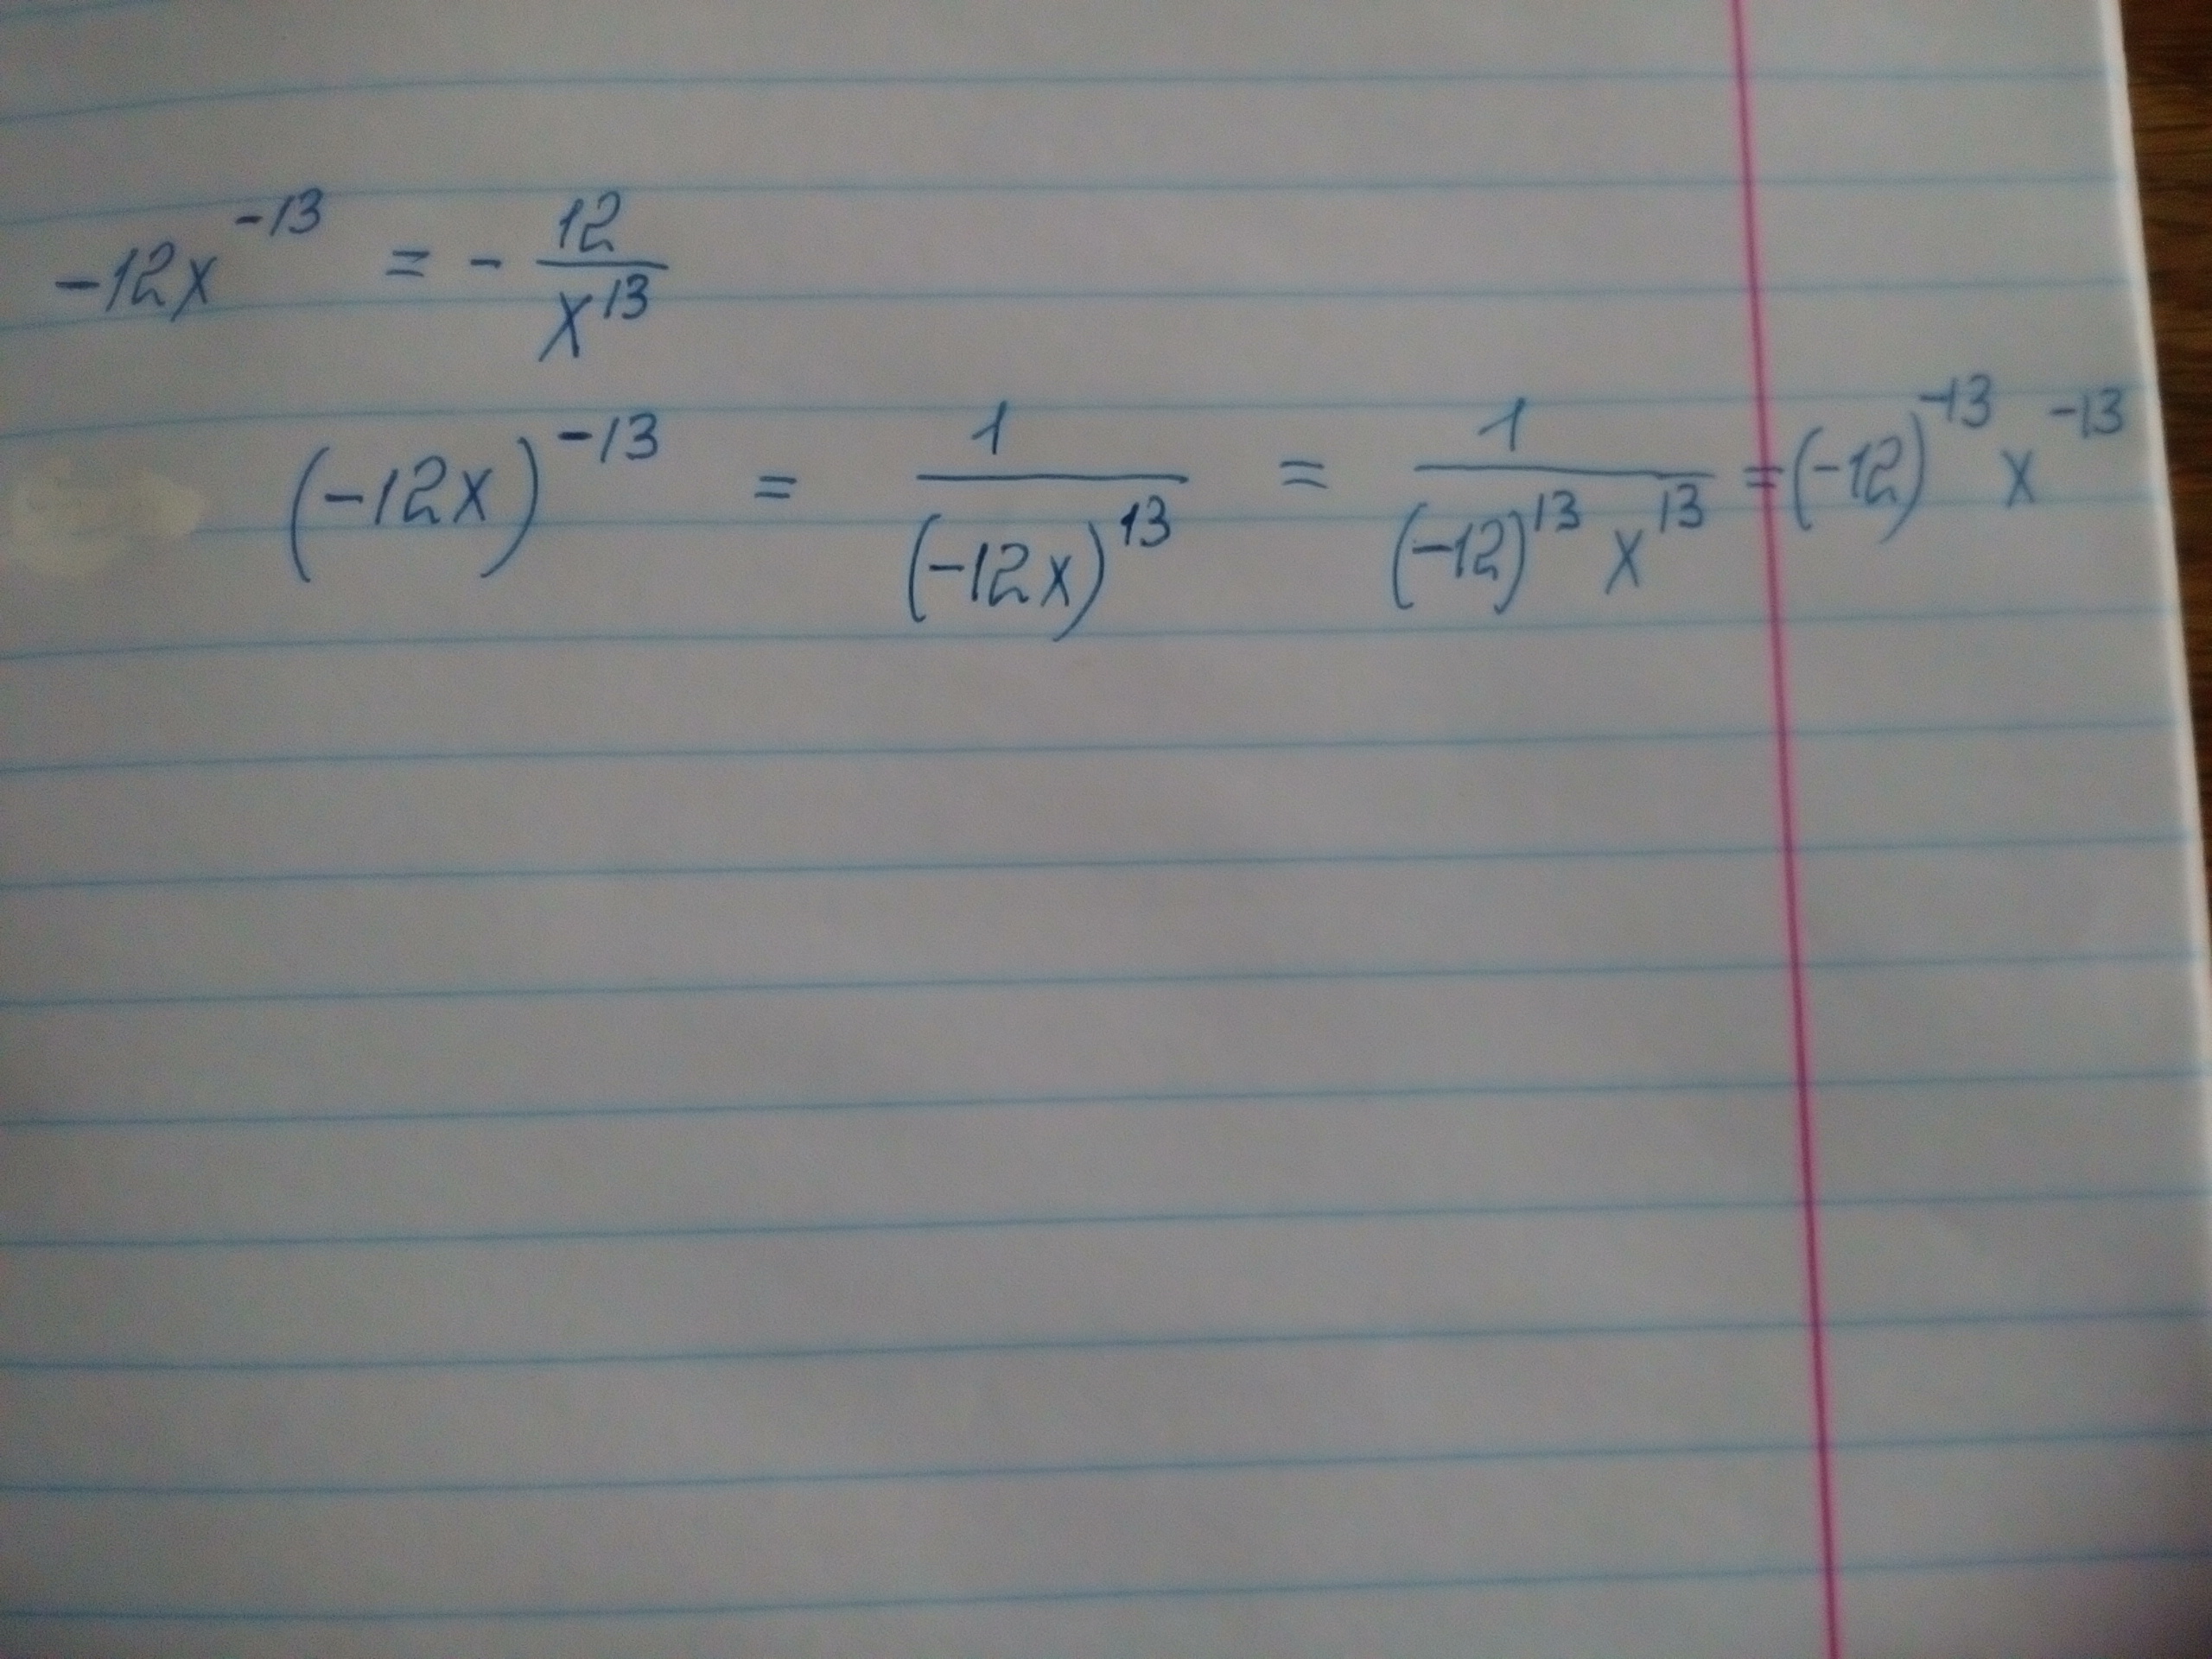 -12x^{-13} = -\frac{12}{x^{13}}
(-12x)^{-13} = \frac{1}{(-12x)^{13}} = \frac{1}{(-12)^{13} x^{13}} = (-12)^{-13} x^{-13}